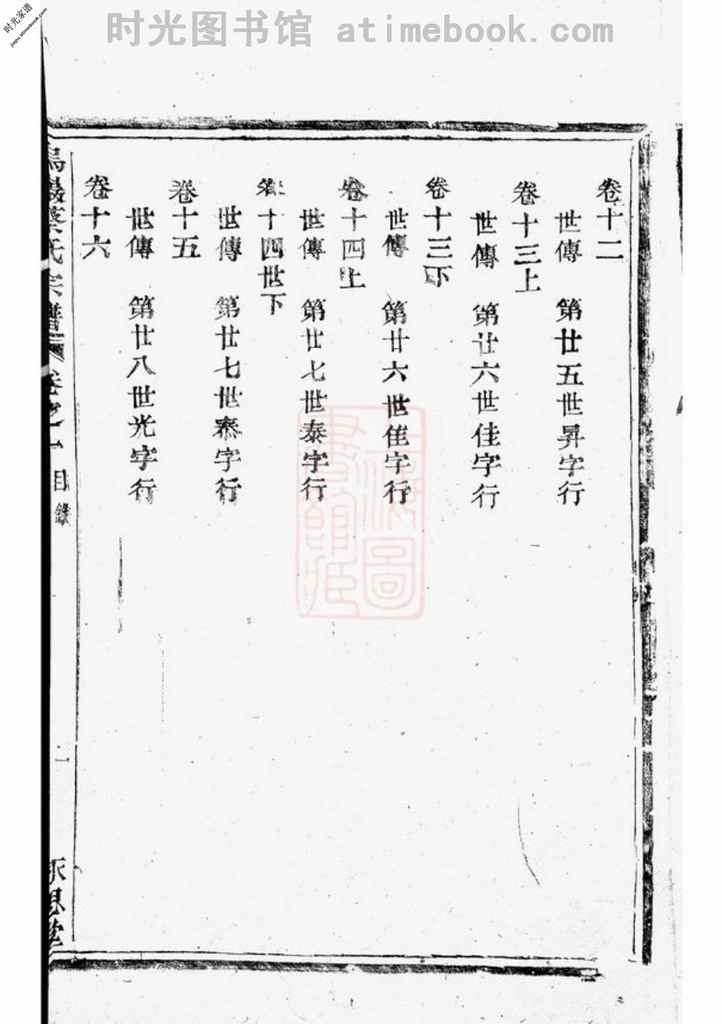 时光图书馆 atimebook.com
时光家谱
jiapu.atimebook.com
卷十二
世傳 第廿五世昇字行
卷十三上
世傳 第廿六世佳字行
卷十三下
世傳 第廿六世佳字行
卷十四上
世傳 第廿七世泰字行
卷十四世下
世傳 第廿七世泰字行
卷十五
世傳 第廿八世光字行
卷十六
蔡氏宗譜 卷之一 目錄 一 永思堂